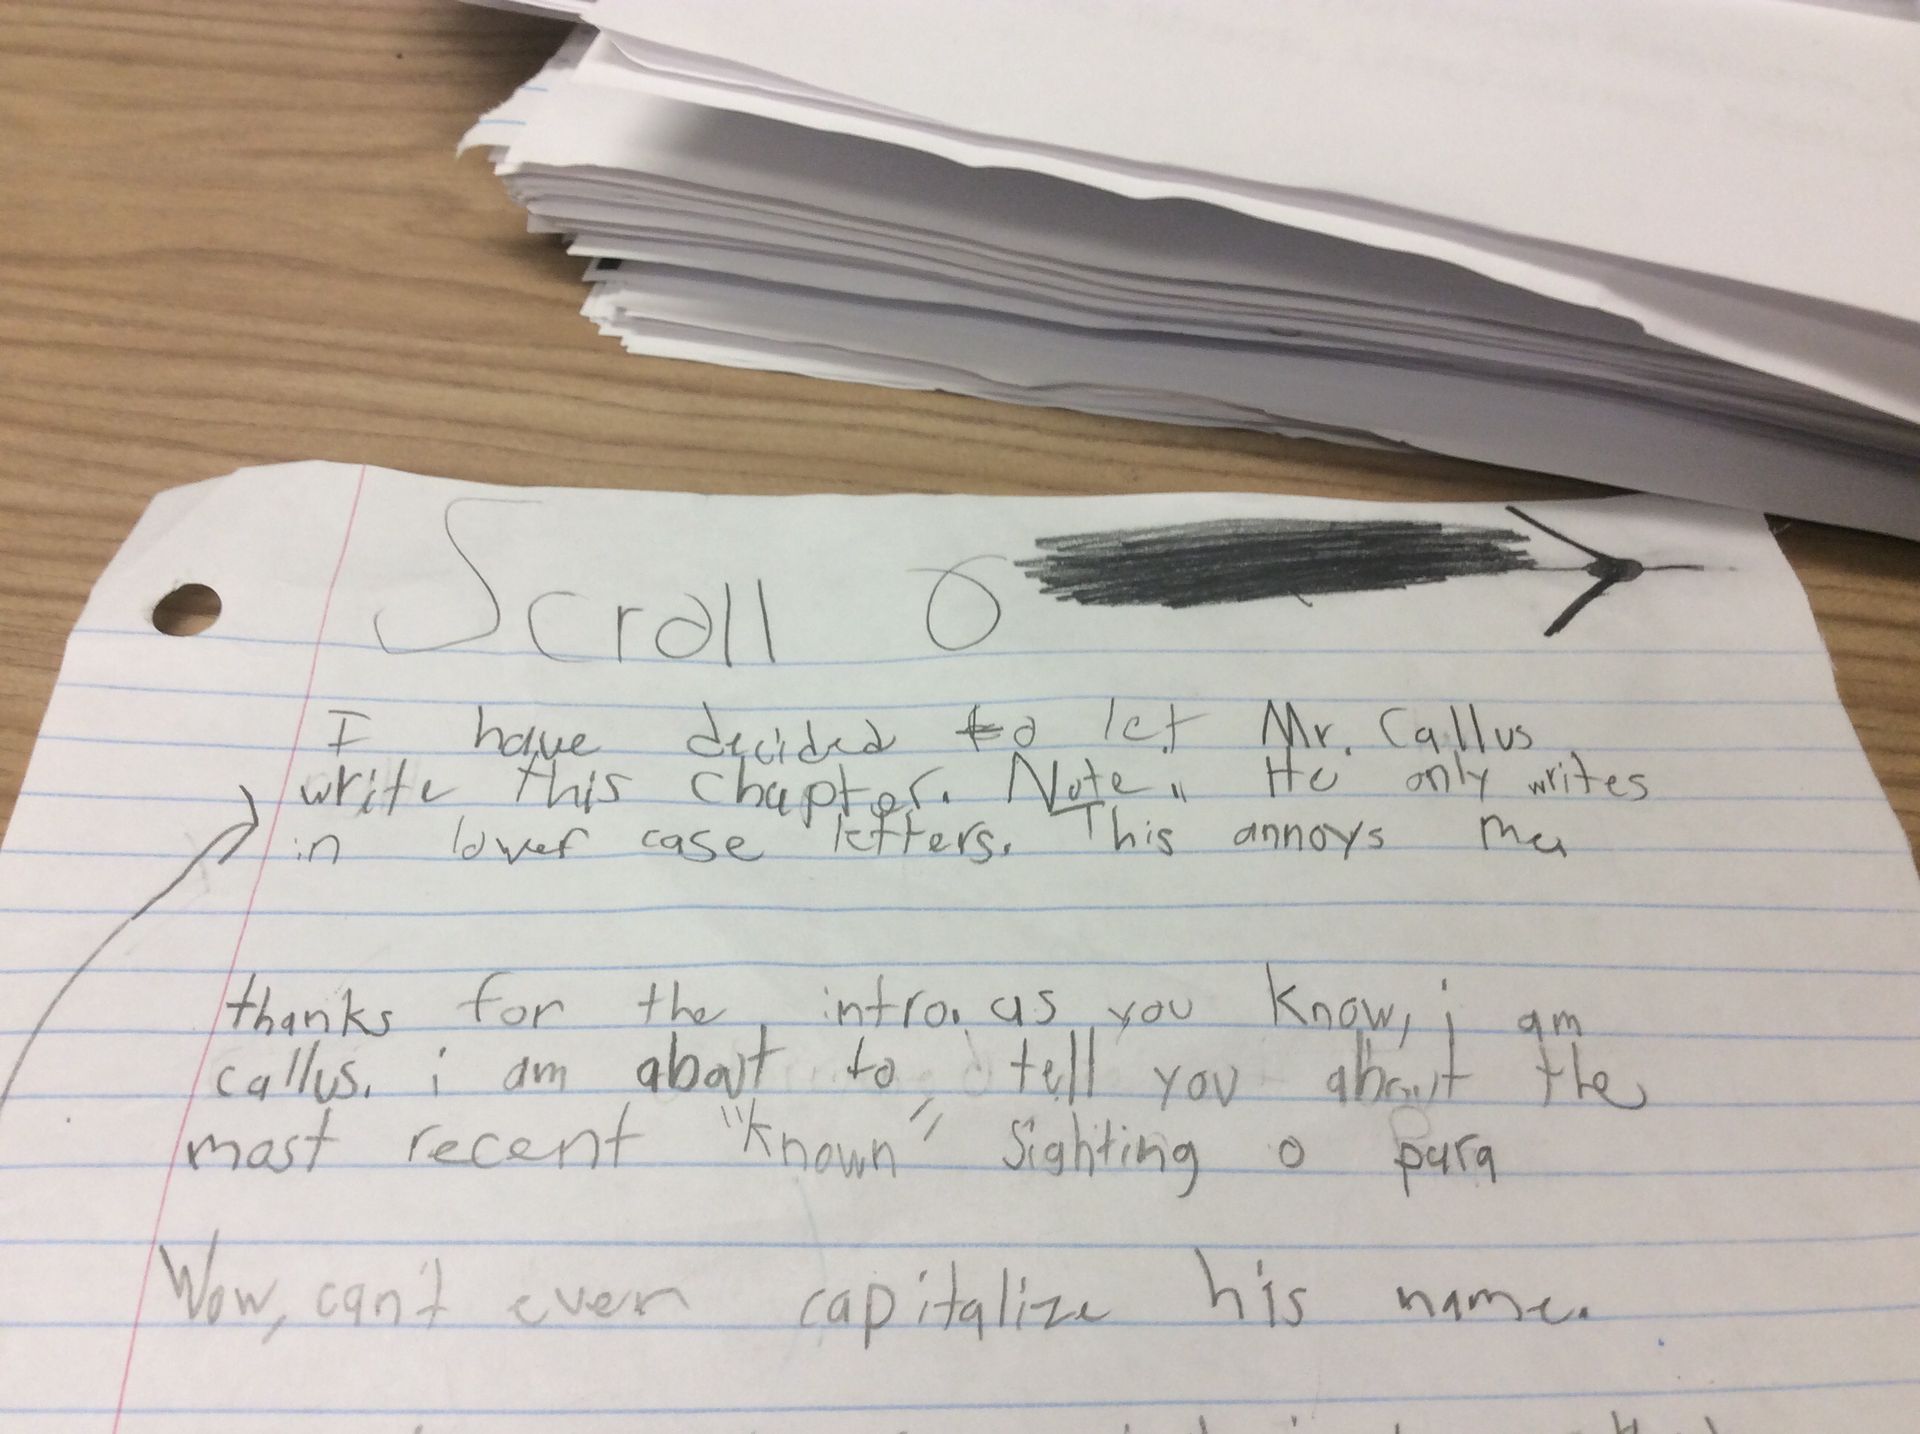 Scroll 6
I have decided to let Mr. Callus
write this chapter. Note: He only writes
in lower case letters. This annoys me
thanks for the intro. as you know, i am
callus. i am about to tell you about the
most recent "known" sighting o para
Wow, can't even capitalize his name.